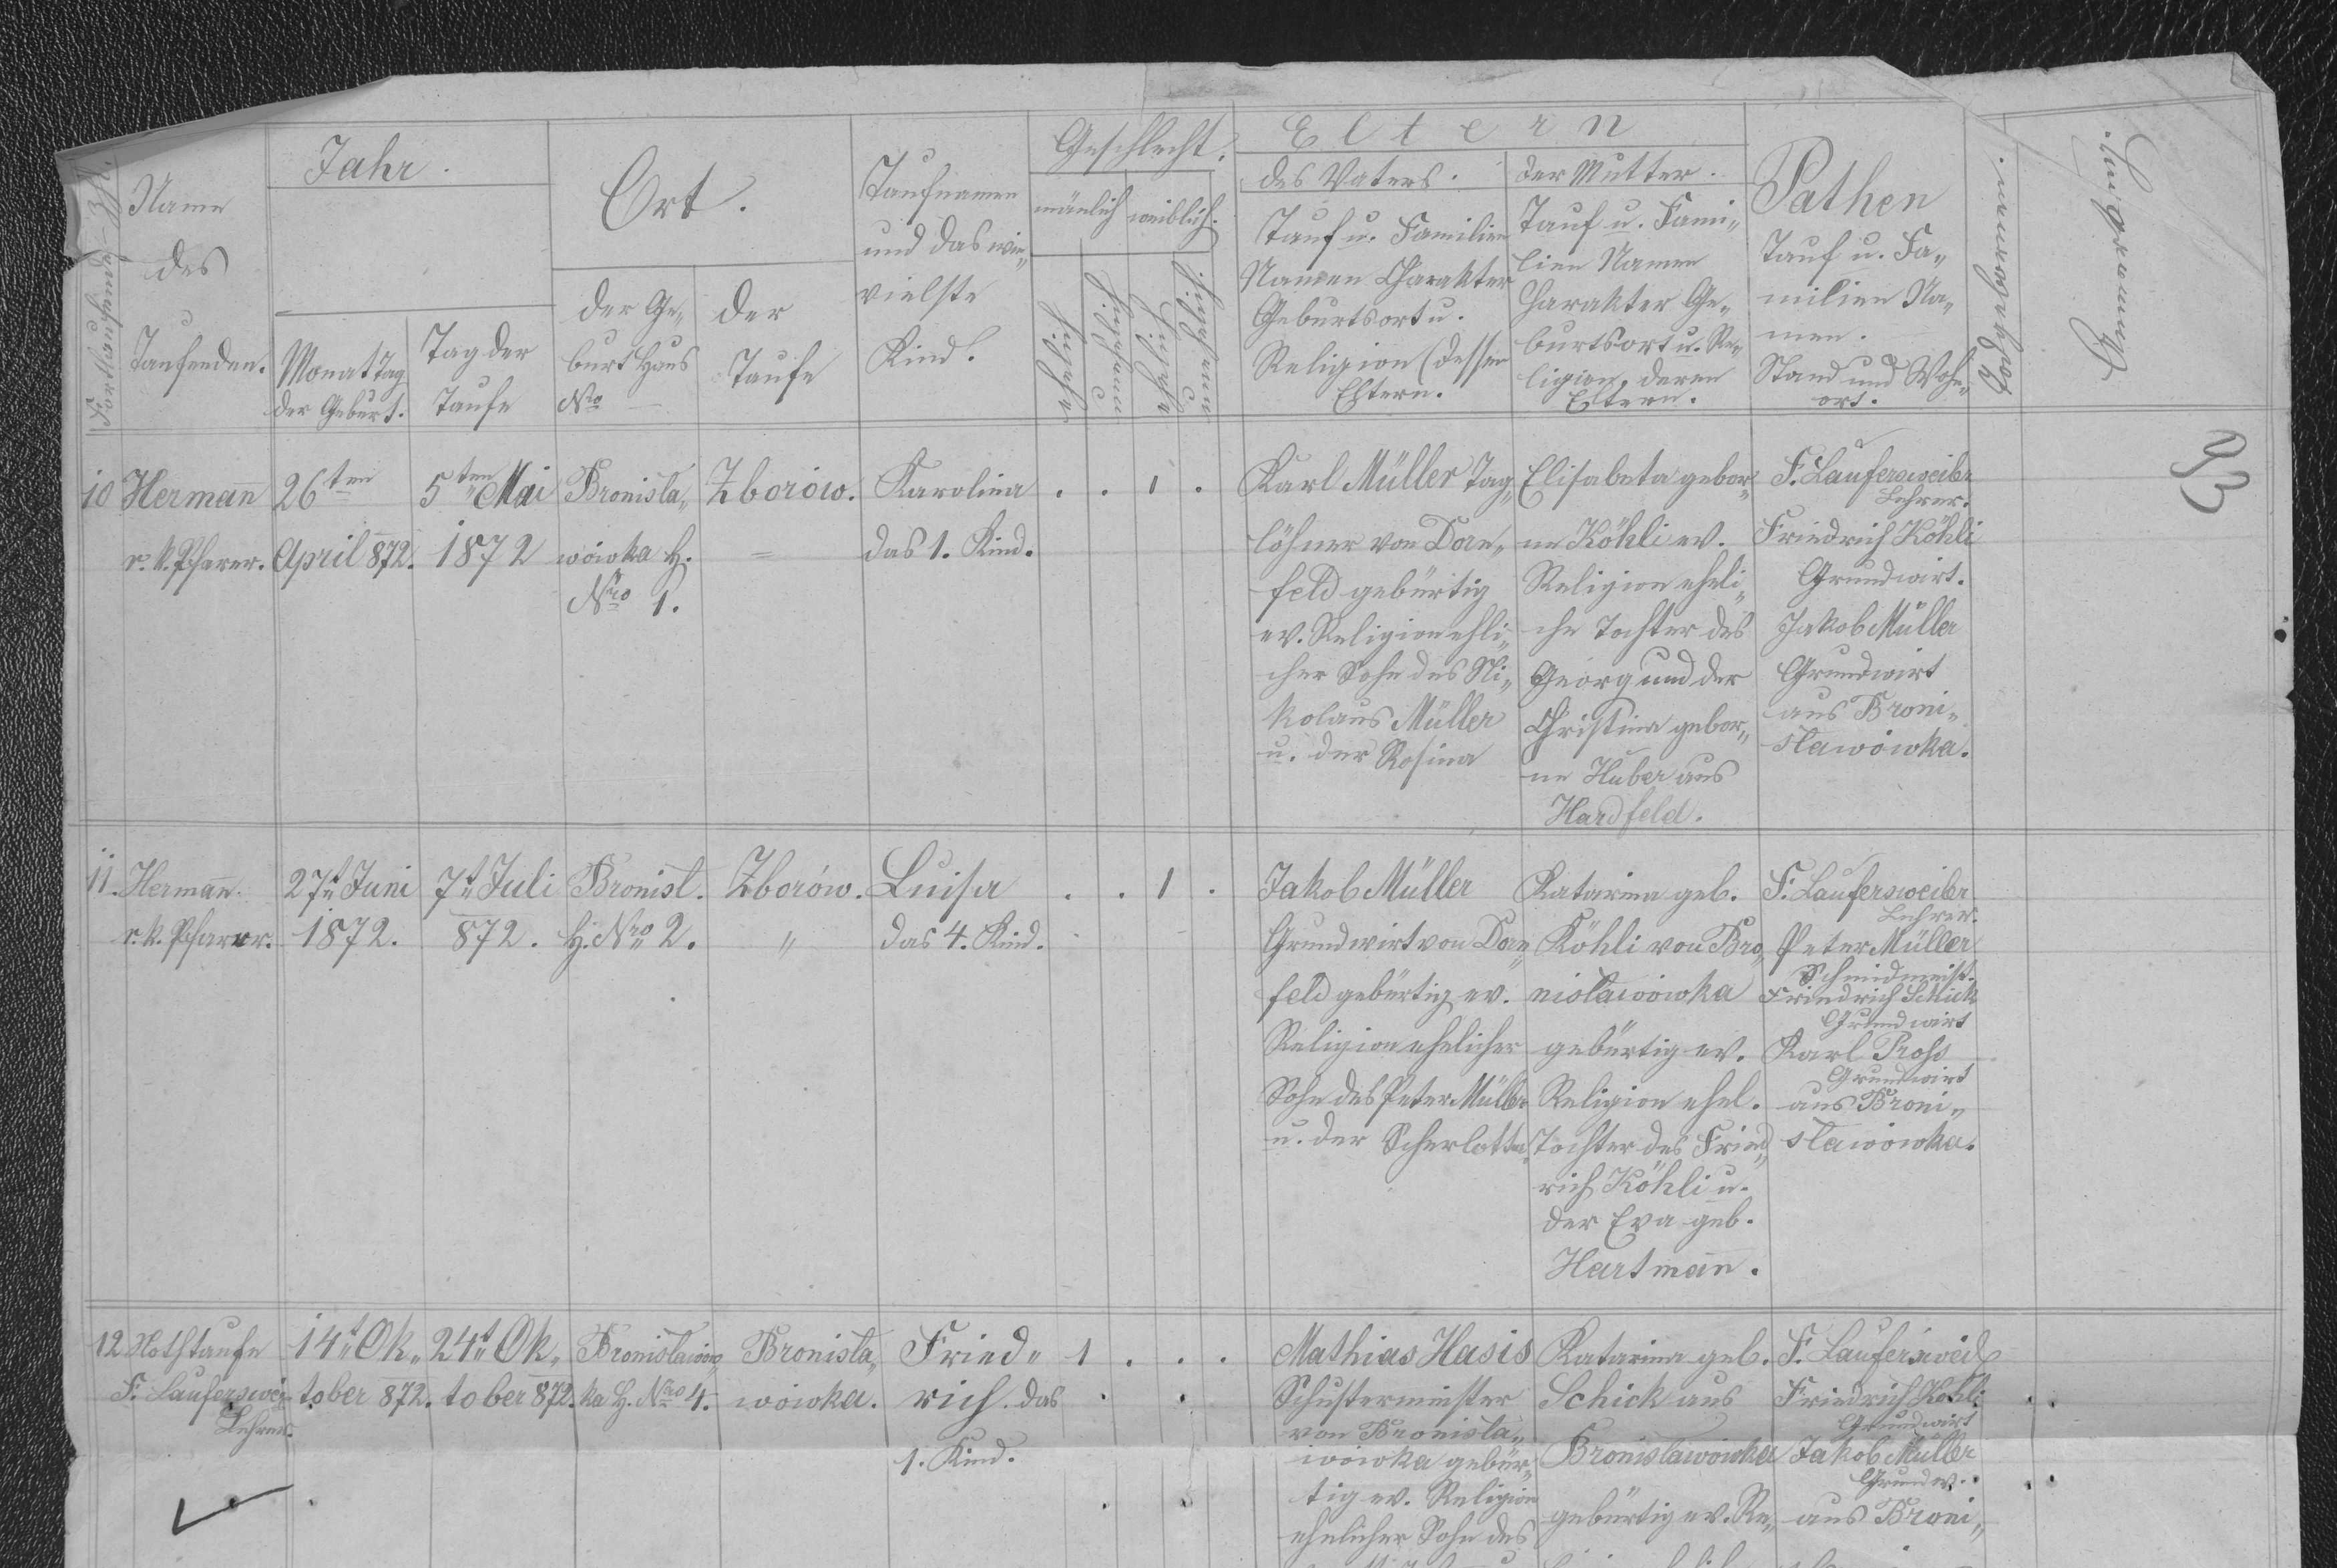 Fortlaufende Zahl.
Name
des
Taufenden.
Jahr.
Monat Tag
der Geburt.
Tag der
Taufe
Ort.
der Ge„
burt Haus
Nro
der
Taufe
Taufnamen
und das wie„
vielste
Kind.
Geschlecht.
mänlich weiblich.
Eltern
des Vaters.
Tauf u. Familien
Namen Charakter
Geburtsort u.
Religion (dessen
Eltern.
der Mutter.
Tauf u. Fami„
lien Namen
Charakter Ge„
burtsort u. Re„
ligion, deren
Eltern.
Pathen
Tauf u. Fa„
milien Na„
men.
Stand und Wohn„
ort.
Todgeboren.
Anmerkung.
93
10
Hermañ
r. k. Pfarer.
26ten
April 872.
5ten Mai
1872
Bronisla„
wòwka H.
Nro 1.
Zboròw.
=
Karolina
das 1. Kind.
. . 1 .
Karl Müller Tag„
löhner von Dorn„
feld gebürtig
ev. Religion ehli„
cher Sohn des Ni„
kolaus Müller
u. der Rosina
Elisabeta gebor„
ne Köhli ev.
Religion eheli„
che Tochter des
Georg und der
Christina gebor„
ne Huber aus
Hardfeld.
F. Laufersweiler
Lehrer.
Friedrich Köhli
Grundwirt.
Jakob Müller
Grundwirt
aus Broni„
slawòwka.
11.
Hermañ.
r. k. Pfarrer.
27t Juni
1872.
7t Juli
872.
Bronisl.
H. Nro 2.
Zboròw.
„
Luisa
das 4. Kind.
. . 1 .
Jakob Müller
Grundwirt von Dorn„
feld gebürtig ev.
Religion ehelicher
Sohn des Peter Müller
u. der Scherlotta
Katarina geb.
Köhli von Bro„
nislawòwka
gebürtig ev.
Religion ehel.
Tochter des Fried„
rich Köhli u.
der Eva geb.
Hartmañ.
F. Laufersweiler
Lehrer.
Peter Müller
Schmidmeist.
Friedrich Schick
Grundwirt
Karl Pross
Grundwirt
aus Broni„
slawòwka.
12
Nothtaufe
F. Lauferswei„
Lehrer.
14t Ok„
tober 872.
24t Ok„
tober 872.
Bronislawòw„
ka H. Nro 4.
Bronisla„
wòwka.
Fried„
rich. das
1. Kind.
1 . . .
Mathias Hasis
Schustermeister
von Bronisla„
wòwka gebür„
tig ev. Religion
ehelicher Sohn des
Katarina geb.
Schick aus
Bronislawòwka
gebürtig ev. Re„
F. Laufersweil
Friedrich Köhli
Grundwirt
Jakob Müller
Grundw.
aus Broni„